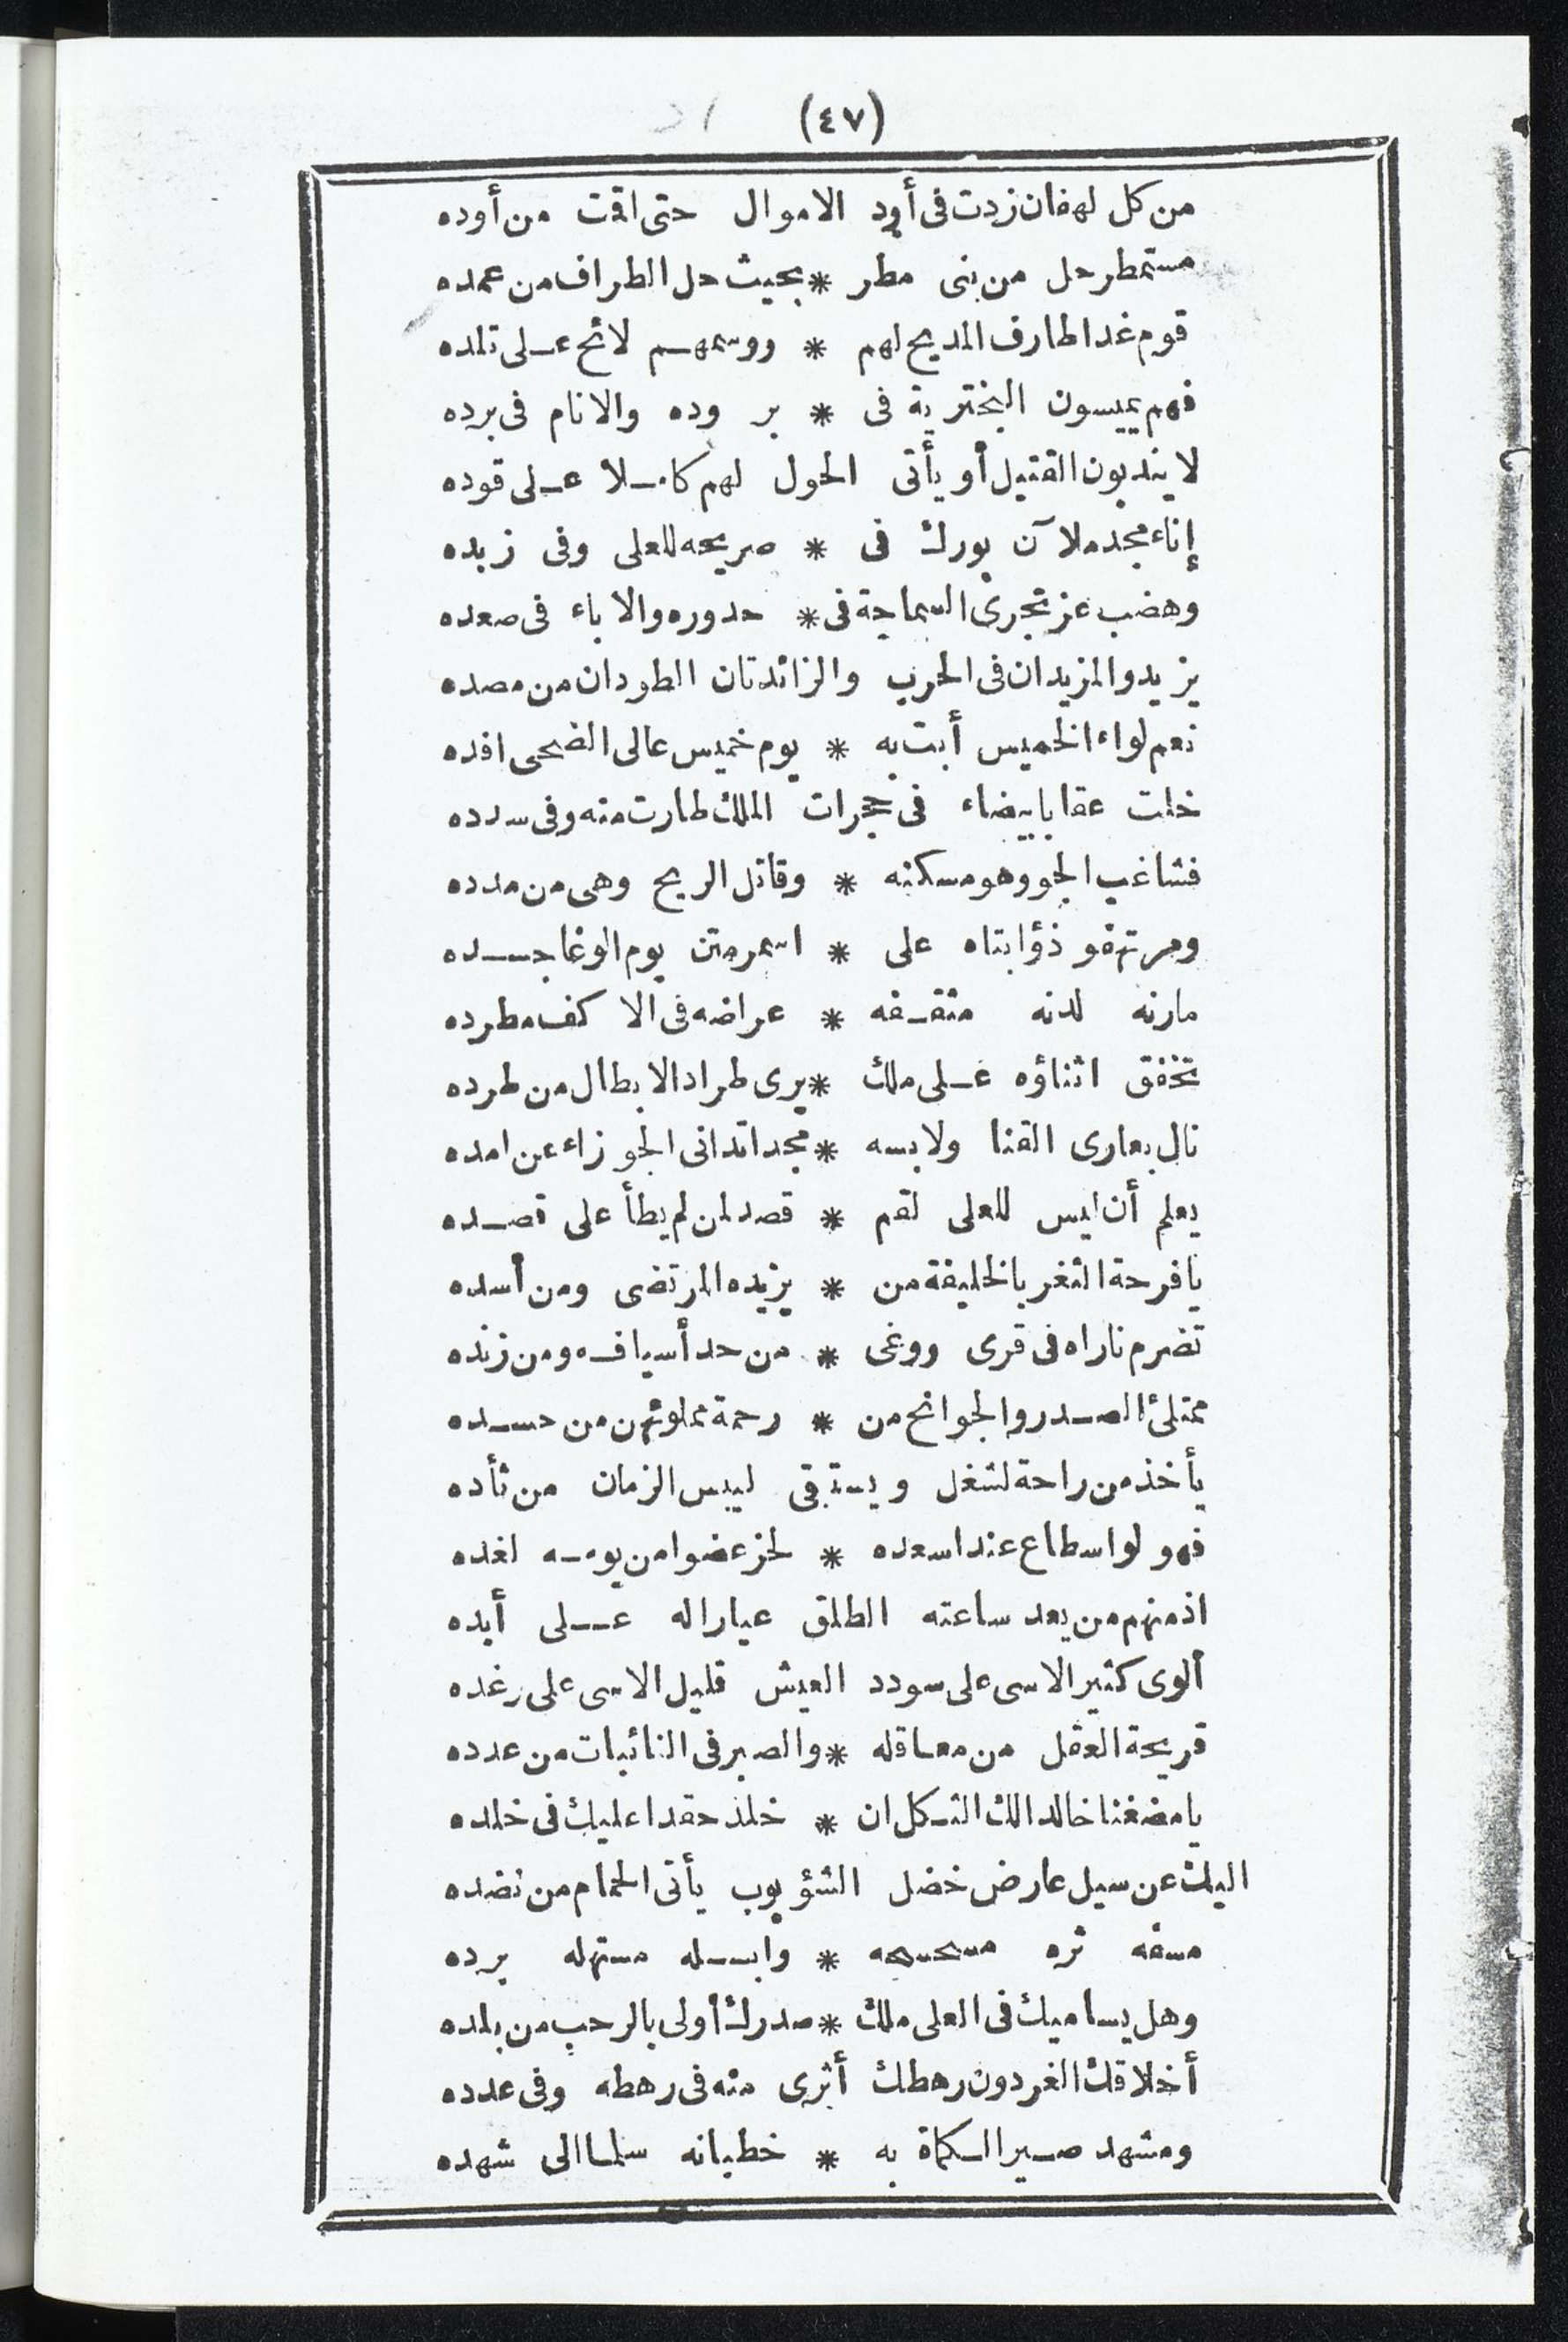 (٤٧)
من كل لهفان زدت فى أود الاموال حتى اقت من أوده
مستمطر حل من بنى مطر * بحيث حل الطراف من عمده
قوم غدا طارف المديح لهم * ووسمهم لائح على تلده
فهم يميسون البخترية فى * بروده والانام فى برده
لا يندبون القتيل أو يأتى الحول لهم كاملا على قوده
إناء مجد ملآن بورك فى * صريحه للعلى وفى زبده
وهضب عز تجرى السماحة فى * حدوره والاباء فى صعده
يزيد والمزيدان فى الحرب والزائدتان الطودان من مصده
نعم لواء الخميس أبت به * يوم خميس عالى الضحى افده
خلت عقابا بيضاء فى حجرات الملك طارت منه وفى سدده
فشاغب الجو وهو مسكنه * وقاتل الريح وهى من مدده
ومر تهفو ذؤابتاه على * اسمر متن يوم الوغا جسده
مارنه لدنه مثقفه * عراضه فى الاكف مطرده
تخفق اثناؤه على ملك * يرى طراد الابطال من طرده
نال بعارى القنا ولابسه * مجدا تدانى الجوزاء عن امده
يعلم أن ليس للعلى لقم * قصد لمن لم يطأ على قصده
يا فرحة الثغر بالخليفة من * يزيده المرتضى ومن أسده
تضرم ناراه فى قرى ووغى * من حد أسيافه ومن زنده
ممتلئ الصدر والجوانح من * رحمة مملوئهن من حسده
يأخذ من راحة لشغل ويستبقى ليبس الزمان من ثأده
فهو لو اسطاع عند اسعده * لحز عضوا من يومه لغده
اذ منهم من يعد ساعته الطلق عيارا له على أبده
ألوى كثير الاسى على سودد العيش قليل الاسى على رغده
قريحة العقل من معاقله * والصبر فى النائبات من عدده
يا مضغنا خالدا لك الثكل ان * خلد حقدا عليك فى خلده
اليك عن سيل عارض خضل الشؤبوب يأتى الحمام من نضده
مسفه ثره مسحسحه * وابله مستهله برده
وهل يساميك فى العلى ملك * صدرك أولى بالرحب من بلده
أخلاقك الغر دون رهطك أثرى منه فى رهطه وفى عدده
ومشهد صير الكماة به * خطبانه سلما الى شهده